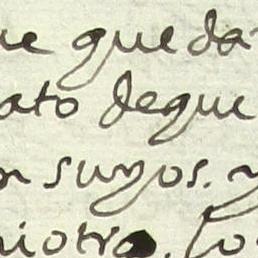 ue quedar
ato deque
n suyos. y
niotro. Co